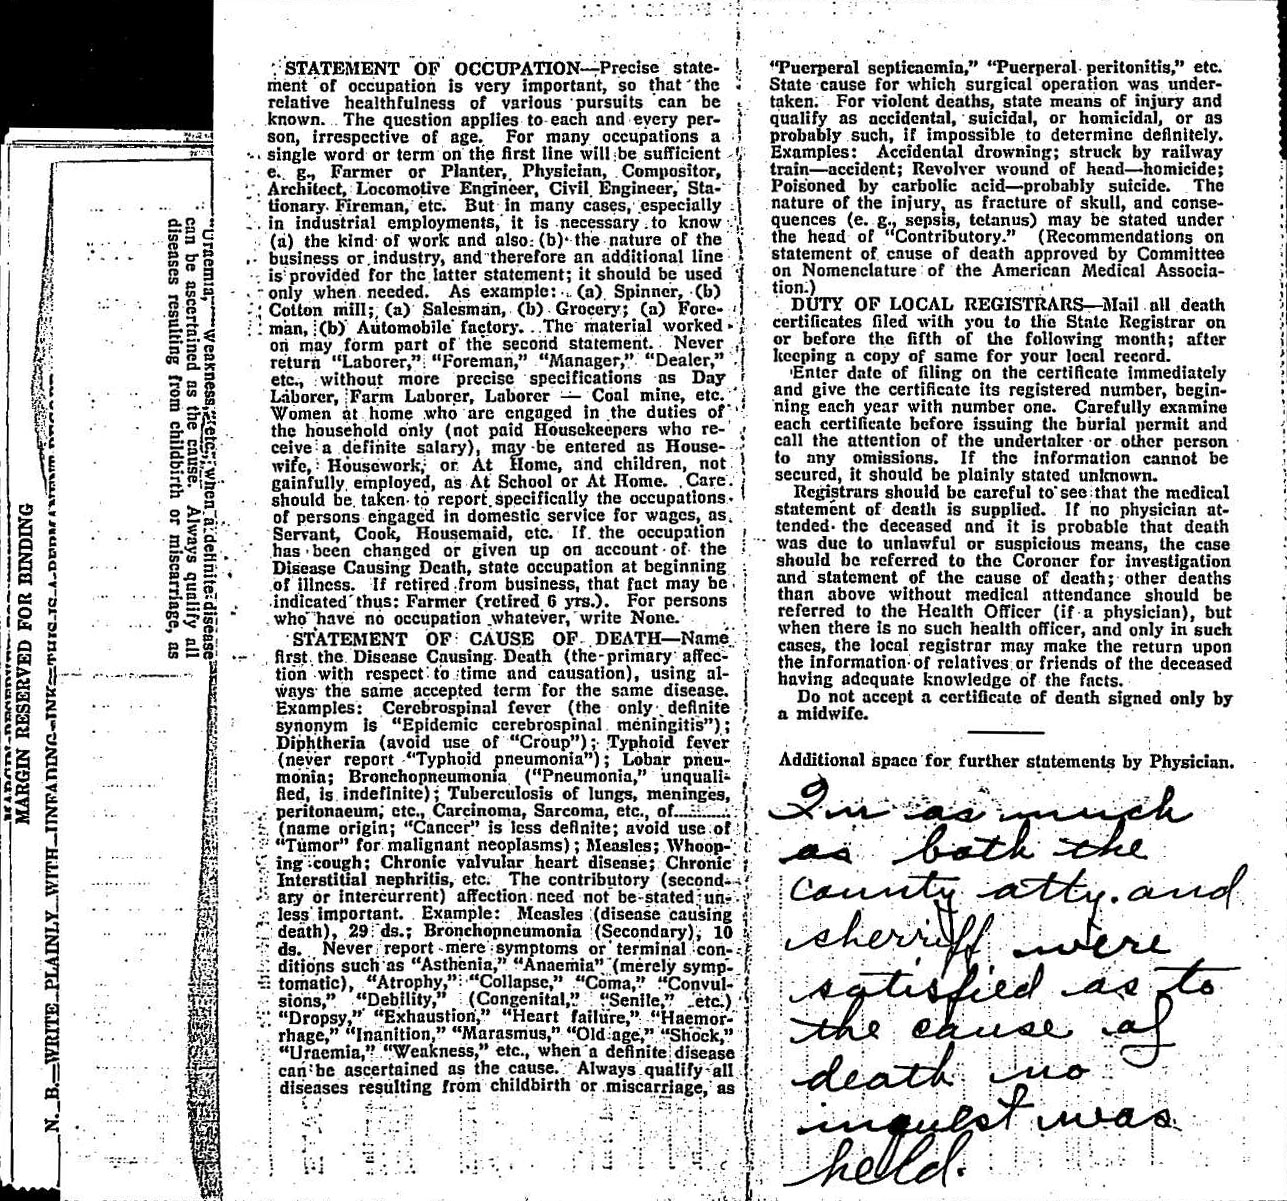 STATEMENT OF OCCUPATION—Precise state-
ment of occupation is very important, so that the
relative healthfulness of various pursuits can be
known. The question applies to each and every per-
son, irrespective of age. For many occupations a
single word or term on the first line will be sufficient
e. g., Farmer or Planter, Physician, Compositor,
Architect, Locomotive Engineer, Civil Engineer, Sta-
tionary Fireman, etc. But in many cases, especially
in industrial employments, it is necessary to know
(a) the kind of work and also (b) the nature of the
business or industry, and therefore an additional line
is provided for the latter statement; it should be used
only when needed. As example: (a) Spinner, (b)
Cotton mill; (a) Salesman, (b) Grocery; (a) Fore-
man, (b) Automobile factory. The material worked
on may form part of the second statement. Never
return "Laborer," "Foreman," "Manager," "Dealer,"
etc., without more precise specifications as Day
Laborer, Farm Laborer, Laborer — Coal mine, etc.
Women at home who are engaged in the duties of
the household only (not paid Housekeepers who re-
ceive a definite salary), may be entered as House-
wife, Housework, or At Home, and children, not
gainfully employed, as At School or At Home. Care
should be taken to report specifically the occupations
of persons engaged in domestic service for wages, as
Servant, Cook, Housemaid, etc. If the occupation
has been changed or given up on account of the
Disease Causing Death, state occupation at beginning
of illness. If retired from business, that fact may be
indicated thus: Farmer (retired 6 yrs.). For persons
who have no occupation whatever, write None.
STATEMENT OF CAUSE OF DEATH—Name
first the Disease Causing Death (the primary affec-
tion with respect to time and causation), using al-
ways the same accepted term for the same disease.
Examples: Cerebrospinal fever (the only definite
synonym is "Epidemic cerebrospinal meningitis");
Diphtheria (avoid use of "Croup"); Typhoid fever
(never report "Typhoid pneumonia"); Lobar pneu-
monia; Bronchopneumonia ("Pneumonia," unquali-
fied, is indefinite); Tuberculosis of lungs, meninges,
peritonaeum, etc., Carcinoma, Sarcoma, etc., of..........
(name origin; "Cancer" is less definite; avoid use of
"Tumor" for malignant neoplasms); Measles; Whoop-
ing cough; Chronic valvular heart disease; Chronic
Interstitial nephritis, etc. The contributory (second-
ary or intercurrent) affection need not be stated un-
less important. Example: Measles (disease causing
death), 29 ds.; Bronchopneumonia (Secondary), 10
ds. Never report mere symptoms or terminal con-
ditions such as "Asthenia," "Anaemia" (merely symp-
tomatic), "Atrophy," "Collapse," "Coma," "Convul-
sions," "Debility," (Congenital," "Senile," etc.)
"Dropsy," "Exhaustion," "Heart failure," "Haemor-
rhage," "Inanition," "Marasmus," "Old age," "Shock,"
"Uraemia," "Weakness," etc., when a definite disease
can be ascertained as the cause. Always qualify all
diseases resulting from childbirth or miscarriage, as
"Puerperal septicaemia," "Puerperal peritonitis," etc.
State cause for which surgical operation was under-
taken. For violent deaths, state means of injury and
qualify as accidental, suicidal, or homicidal, or as
probably such, if impossible to determine definitely.
Examples: Accidental drowning; struck by railway
train—accident; Revolver wound of head—homicide;
Poisoned by carbolic acid—probably suicide. The
nature of the injury, as fracture of skull, and conse-
quences (e. g., sepsis, tetanus) may be stated under
the head of "Contributory." (Recommendations on
statement of cause of death approved by Committee
on Nomenclature of the American Medical Associa-
tion.)
DUTY OF LOCAL REGISTRARS—Mail all death
certificates filed with you to the State Registrar on
or before the fifth of the following month; after
keeping a copy of same for your local record.
Enter date of filing on the certificate immediately
and give the certificate its registered number, begin-
ning each year with number one. Carefully examine
each certificate before issuing the burial permit and
call the attention of the undertaker or other person
to any omissions. If the information cannot be
secured, it should be plainly stated unknown.
Registrars should be careful to see that the medical
statement of death is supplied. If no physician at-
tended the deceased and it is probable that death
was due to unlawful or suspicious means, the case
should be referred to the Coroner for investigation
and statement of the cause of death; other deaths
than above without medical attendance should be
referred to the Health Officer (if a physician), but
when there is no such health officer, and only in such
cases, the local registrar may make the return upon
the information of relatives or friends of the deceased
having adequate knowledge of the facts.
Do not accept a certificate of death signed only by
a midwife.
Additional space for further statements by Physician.
In as much
as both the
county atty. and
sherriff were
satisfied as to
the cause of
death no
inquest was
held.
"Uraemia," "Weakness," etc., when a definite disease
can be ascertained as the cause. Always qualify all
diseases resulting from childbirth or miscarriage, as
MARGIN RESERVED FOR BINDING
N. B.—WRITE PLAINLY WITH UNFADING INK—THIS IS A PERMANENT RECORD